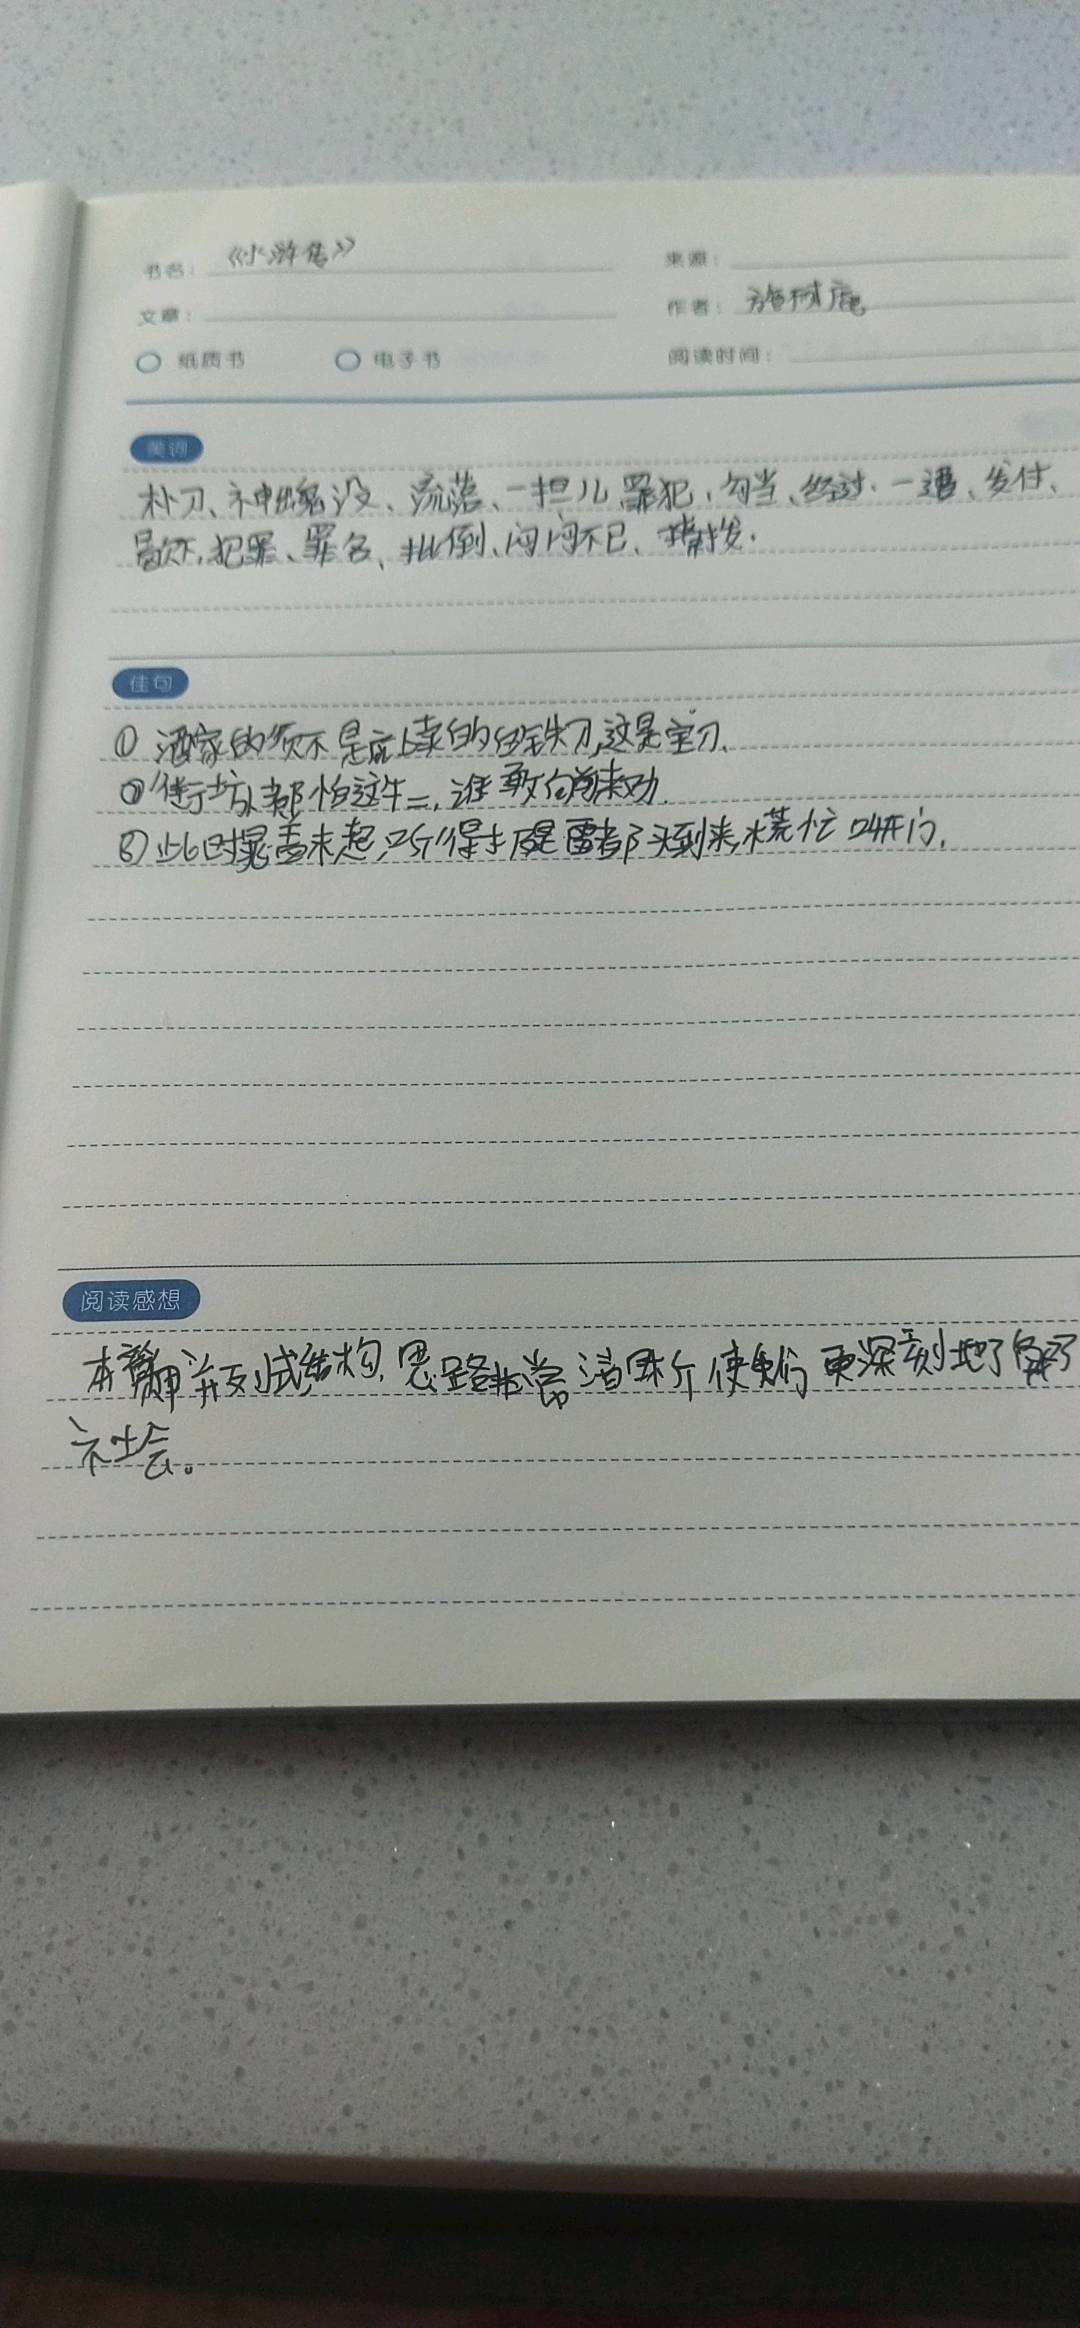 书名： 《水浒传》
来源：
文章：
作者： 施耐庵
纸质书 电子书
阅读时间：
美词
朴刀、神出鬼没、流落、一担儿、罪犯、勾当、经过、一遭、发付、
歇下、犯罪、罪名、扯倒、闷闷不已、撩拨.
佳句
① 洒家的须不是店上卖的白铁刀,这是宝刀.
② 街坊人都怕这牛二,谁敢向前来劝.
③ 此时晁盖未起,听得是雷都头到来,慌忙叫开门.
阅读感想
本章 并列式结构,思路非常清晰 使我们更深刻地了解了
社会。